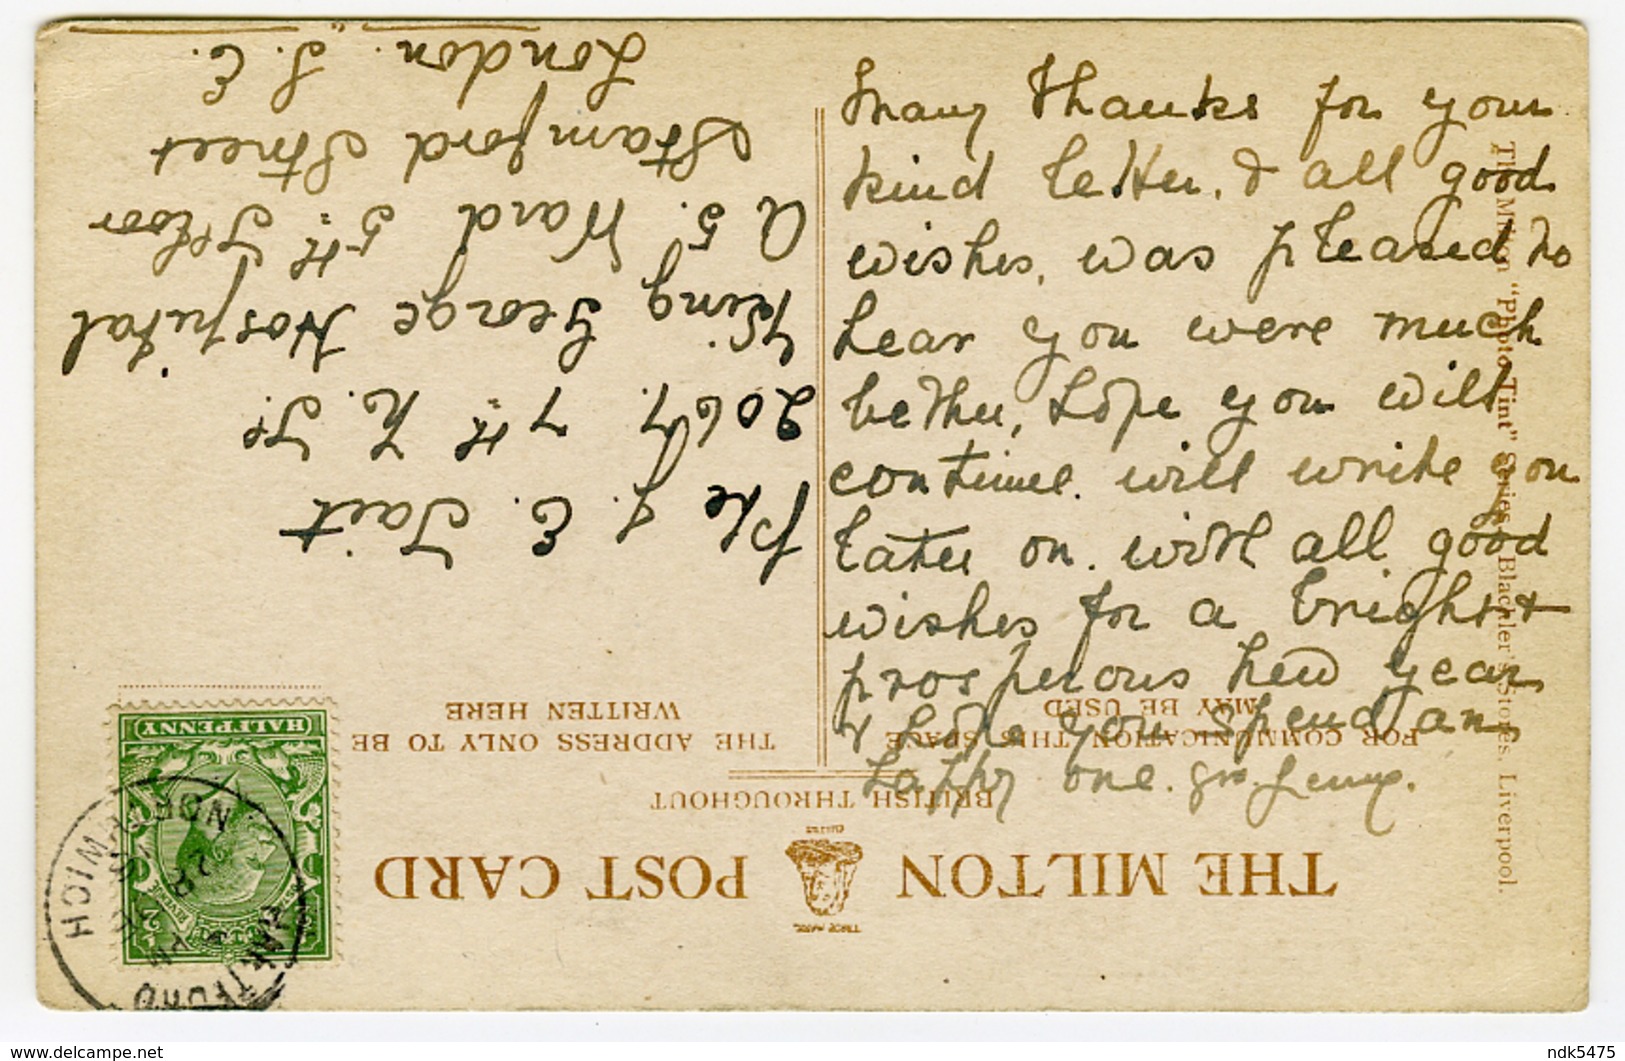 Many thanks for your
kind letter, & all good
wishes, was pleased to
hear you were much
better, hope you will
continue. will write you
later on. with all good
wishes for a bright &
prosperous New year
& hope you spend an
happy one.
THE MILTON POST CARD
TRADE MARK
BRITISH THROUGHOUT
FOR COMMUNICATION THIS SPACE
MAY BE USED
THE ADDRESS ONLY TO BE
WRITTEN HERE
HALFPENNY
DARTFORD
NORTHWICH
Pte J. E. Tait
2067. 7th N. F.
King George Hospital
A 5. Ward 5th Floor
Stamford Street
London. S. E.
The Milton "Photo-Tint" Series. Blackler's Stores. Liverpool.
ndk5475